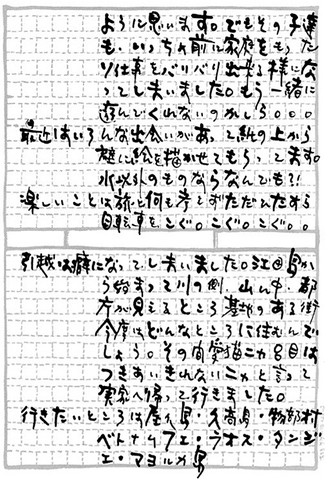 ように思います。でもその子達
も、いつの前に家庭をもった
り仕事をバリバリ出来る様にな
ってしまいました。もう一緒に
遊んでくれないのかしら。。。
最近はいろんな出会いがあって紙の上から
壁に絵を描かせてもらってます。
水以外のものならなんでも?!
楽しいことは旅と何も考えずただひたすら
自転車をこぐ。こぐ。こぐ。。
引越は癖になってしまいました。江田島か
ら始まって川の側、山ん中、都
庁が見えるところ、基地のある街
今度はどんなところに住むんで
しょう。その間愛猫ニカ8日目は
つきあいきれないニカと言って
実家へ帰って行きました。
行きたいところは屋久島・久高島・物部村
ベトナムフェ・ラオス・タンジ
ェ・マヨルカ島